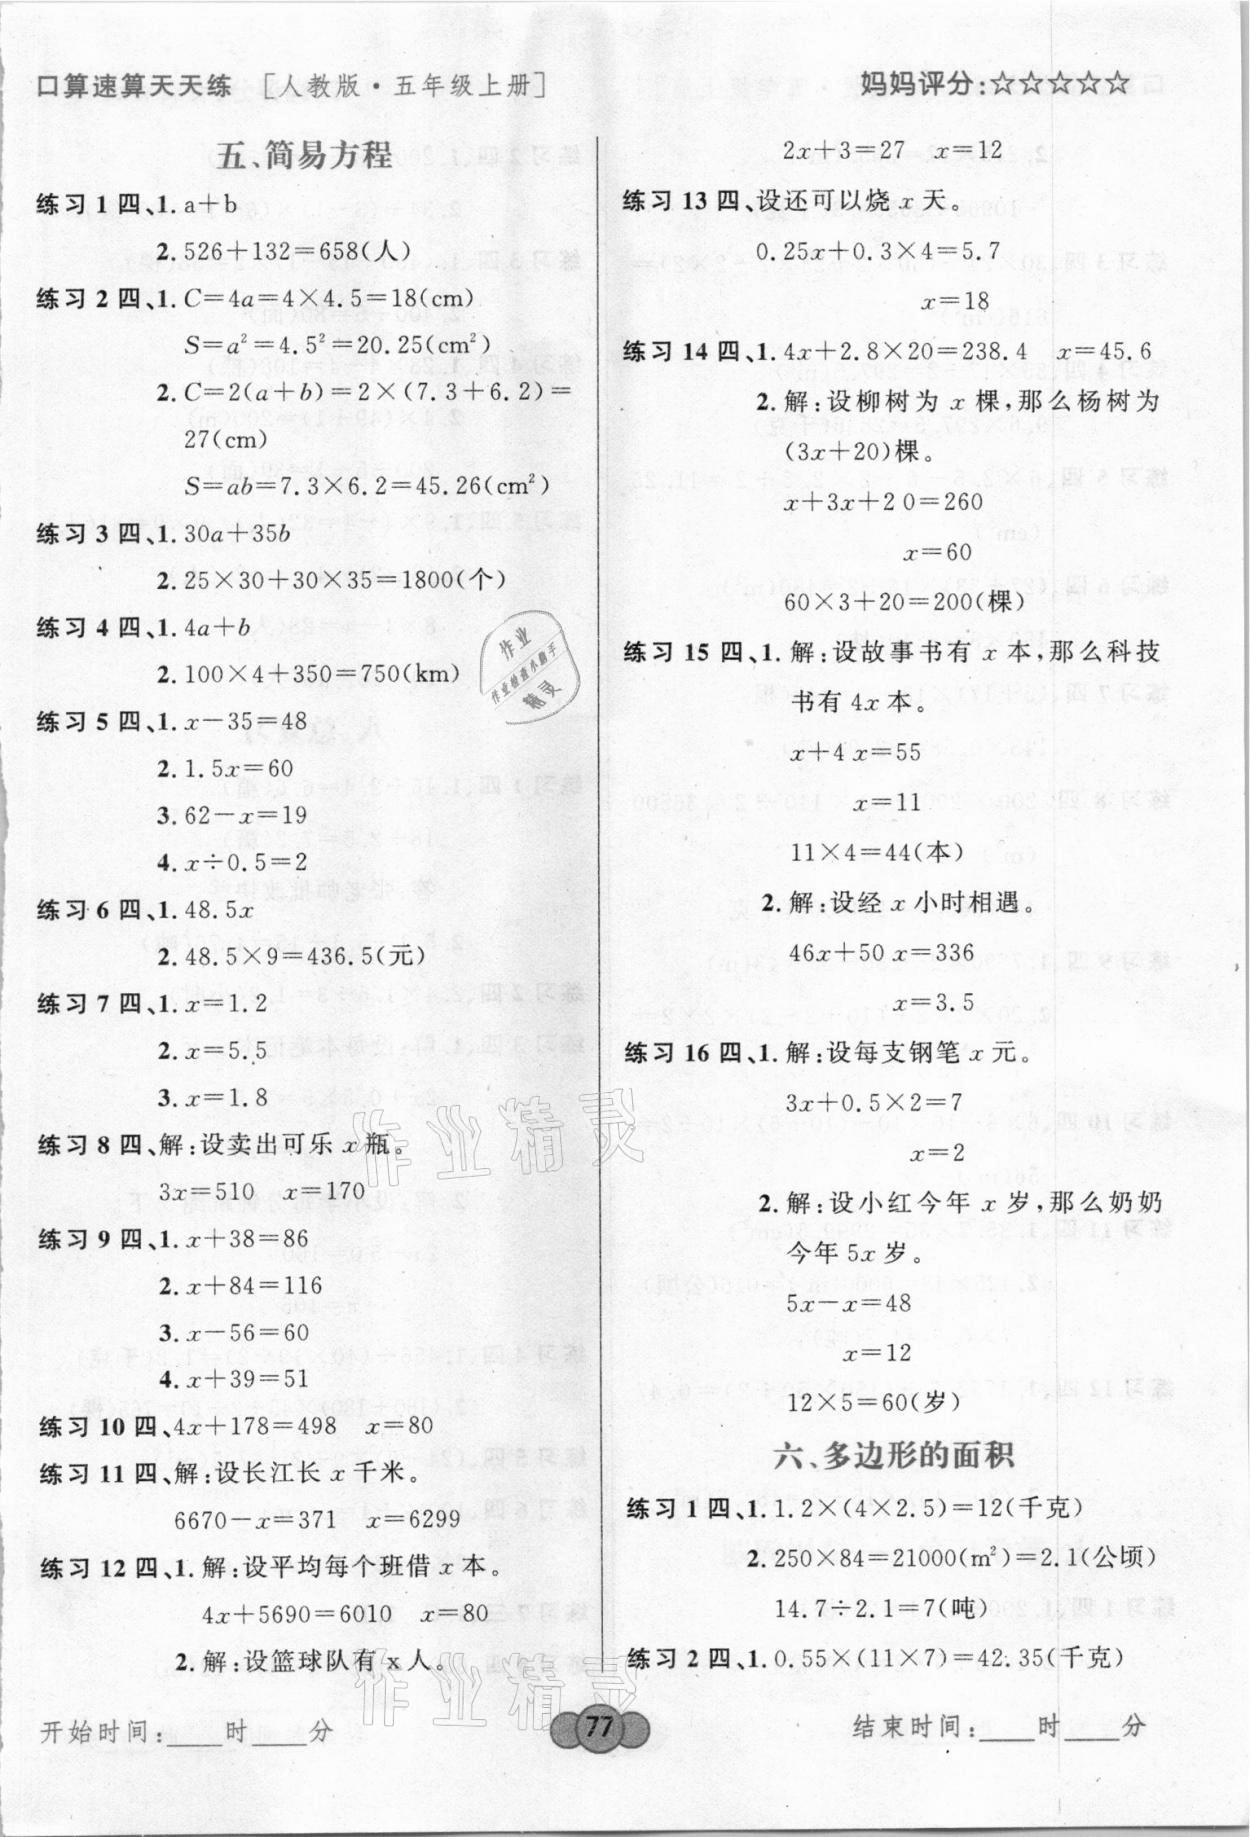 口算速算天天练 [人教版·五年级上册]
妈妈评分:☆☆☆☆☆
五、简易方程
练习1四、1. a+b
2. 526+132=658(人)
练习2四、1. C=4a=4×4.5=18(cm)
S=a²=4.5²=20.25(cm²)
2. C=2(a+b)=2×(7.3+6.2)=
27(cm)
S=ab=7.3×6.2=45.26(cm²)
练习3四、1. 30a+35b
2. 25×30+30×35=1800(个)
练习4四、1. 4a+b
2. 100×4+350=750(km)
练习5四、1. x-35=48
2. 1.5x=60
3. 62-x=19
4. x÷0.5=2
练习6四、1. 48.5x
2. 48.5×9=436.5(元)
练习7四、1. x=1.2
2. x=5.5
3. x=1.8
练习8四、解:设卖出可乐x瓶。
3x=510 x=170
练习9四、1. x+38=86
2. x+84=116
3. x-56=60
4. x+39=51
练习10四、4x+178=498 x=80
练习11四、解:设长江长x千米。
6670-x=371 x=6299
练习12四、1. 解:设平均每个班借x本。
4x+5690=6010 x=80
2. 解:设篮球队有x人。
2x+3=27 x=12
练习13四、设还可以烧x天。
0.25x+0.3×4=5.7
x=18
练习14四、1. 4x+2.8×20=238.4 x=45.6
2. 解:设柳树为x棵,那么杨树为
(3x+20)棵。
x+3x+20=260
x=60
60×3+20=200(棵)
练习15四、1. 解:设故事书有x本,那么科技
书有4x本。
x+4x=55
x=11
11×4=44(本)
2. 解:设经x小时相遇。
46x+50x=336
x=3.5
练习16四、1. 解:设每支钢笔x元。
3x+0.5×2=7
x=2
2. 解:设小红今年x岁,那么奶奶
今年5x岁。
5x-x=48
x=12
12×5=60(岁)
六、多边形的面积
练习1四、1. 1.2×(4×2.5)=12(千克)
2. 250×84=21000(m²)=2.1(公顷)
14.7÷2.1=7(吨)
练习2四、1. 0.55×(11×7)=42.35(千克)
开始时间:____时____分
77
结束时间:____时____分
作业
作业检查小助手
精灵
作业精灵
作业精灵